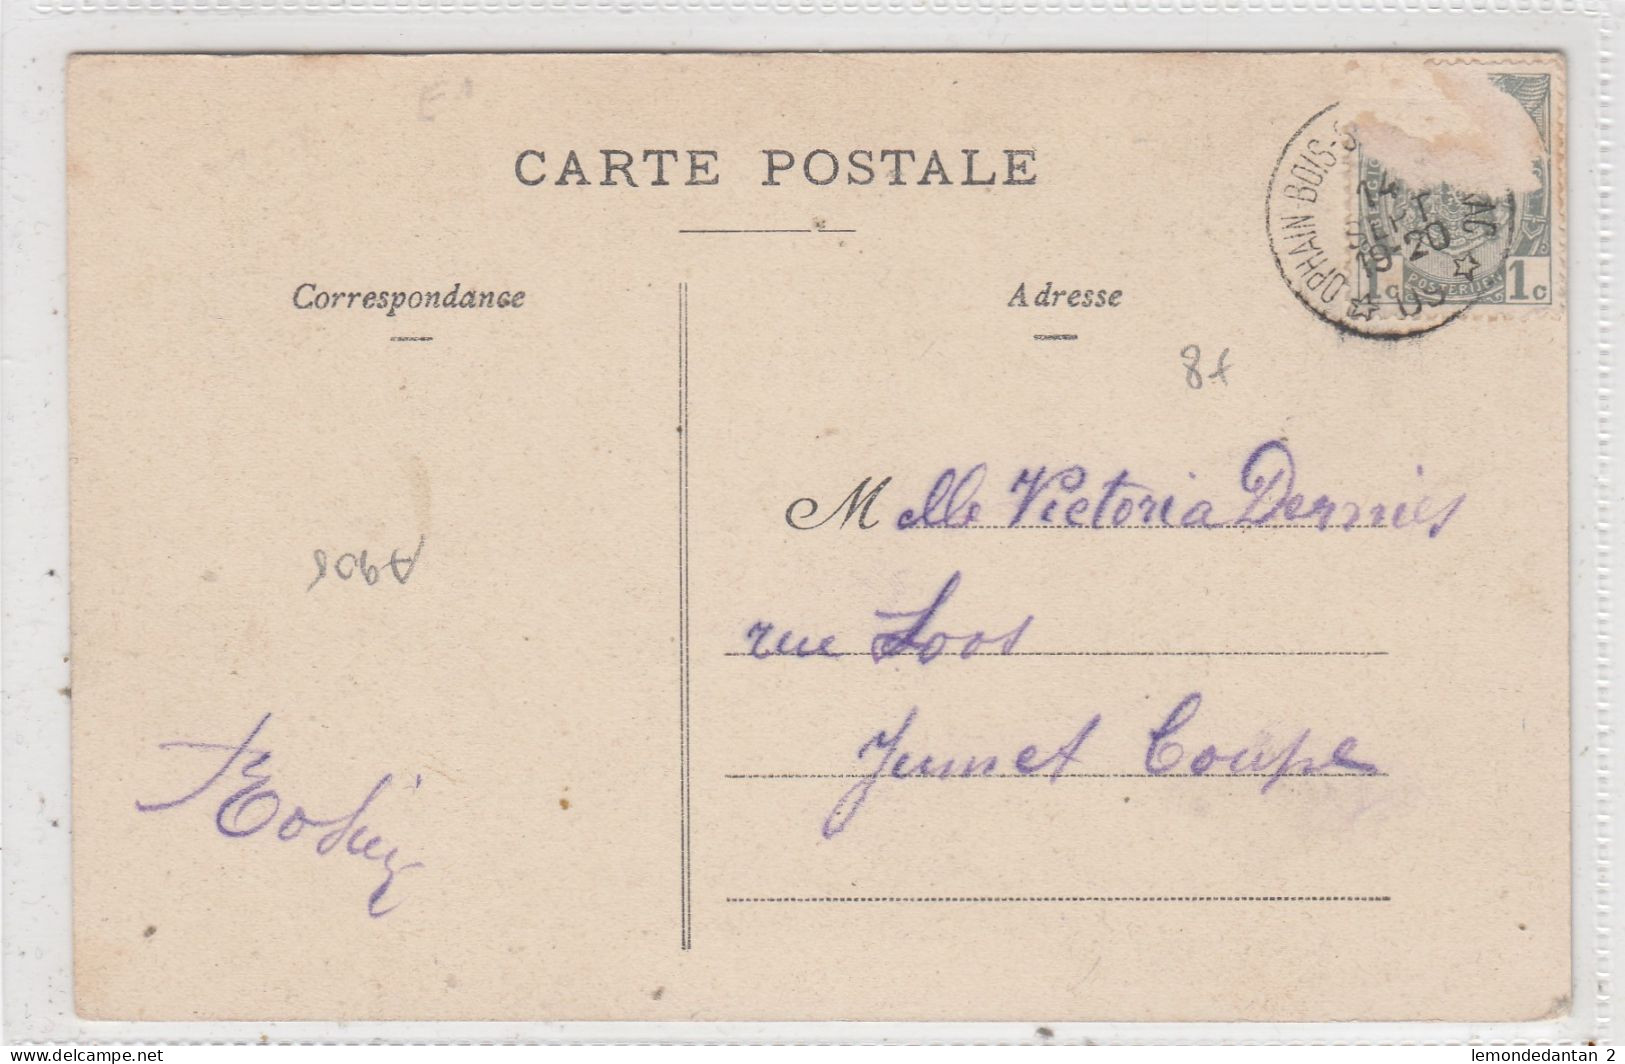 CARTE POSTALE
Correspondance
Adresse
OPHAIN-BOIS-S
AC
14
SEPT
19-20
09
1c POSTERIJEN 1c
8f
Melle Victoria Dernies
rue Loos
Jumet Coupe
A908
lemondedantan 2
www.delcampe.net